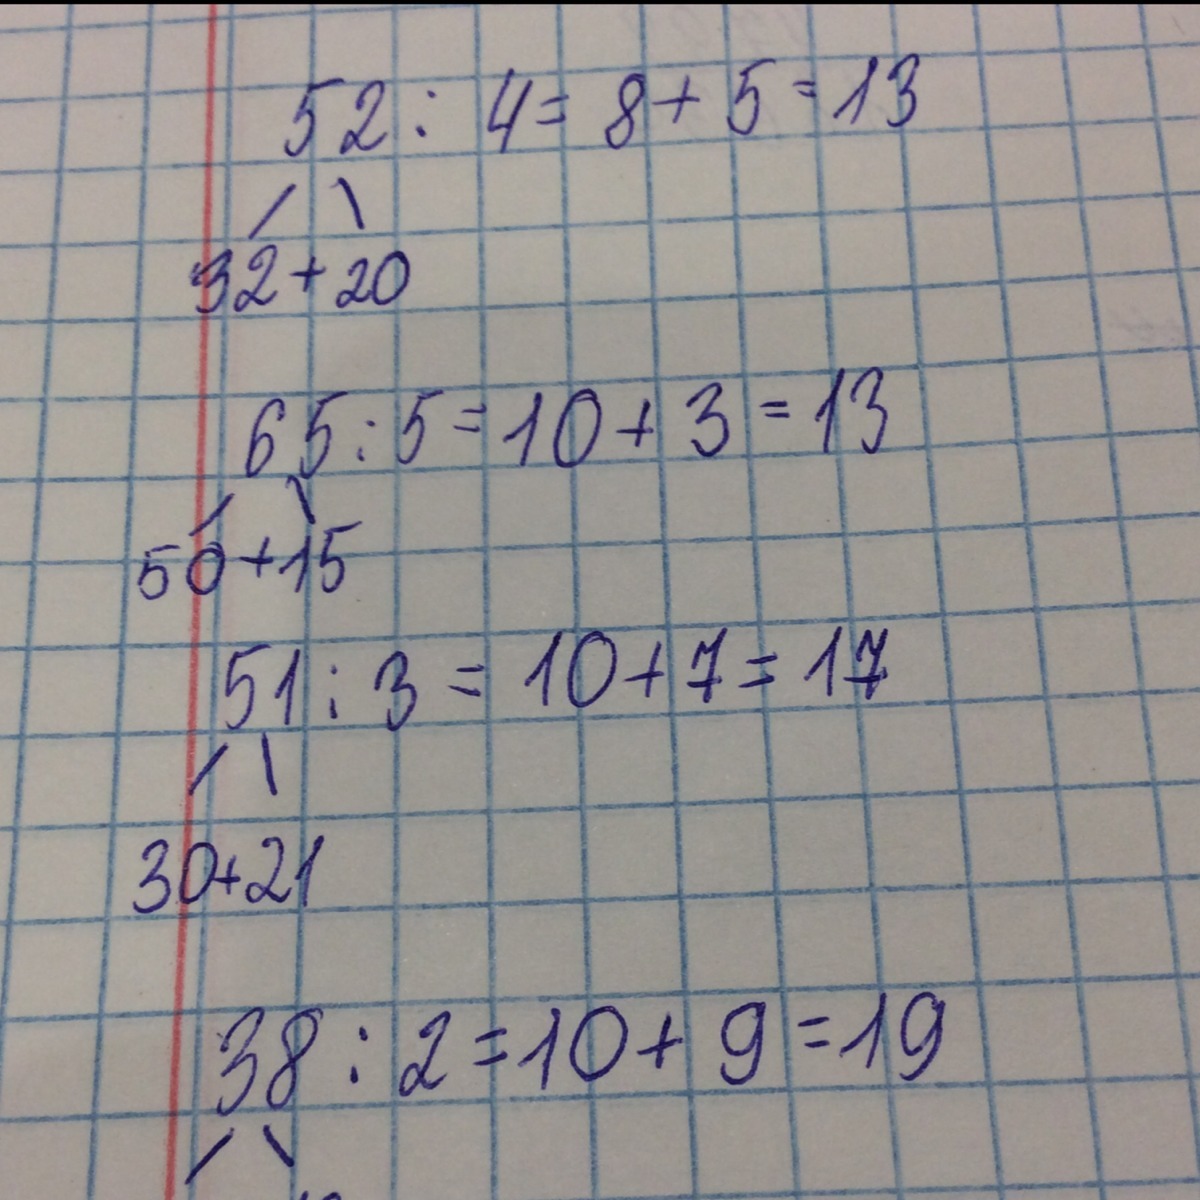 52 : 4 = 8 + 5 = 13
32 + 20
65 : 5 = 10 + 3 = 13
50 + 15
51 : 3 = 10 + 7 = 17
30 + 21
38 : 2 = 10 + 9 = 19